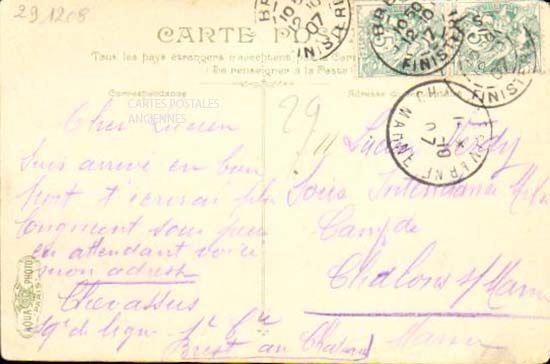 29.1208
CARTE POSTALE
Tous les pays étrangers n'acceptent pas la Cor
Se renseigner à la Poste
Correspondance
Adresse du
CARTES POSTALES
ANCIENNES
Cher Lucien
Suis arrivé en bon
port t'écrirai plus
longuement sous peu
en attendant voici
mon adresse
Chevassus
de ligne
Brest au Chateau
AQUA PHOTO
PARIS
29
Lucien Verdy
Sous Intendance
Camp de
Chalons s/ Marne
Marne
BREST
07
FINISTERE
BREST
FINISTERE
FINISTERE
MARNE
07